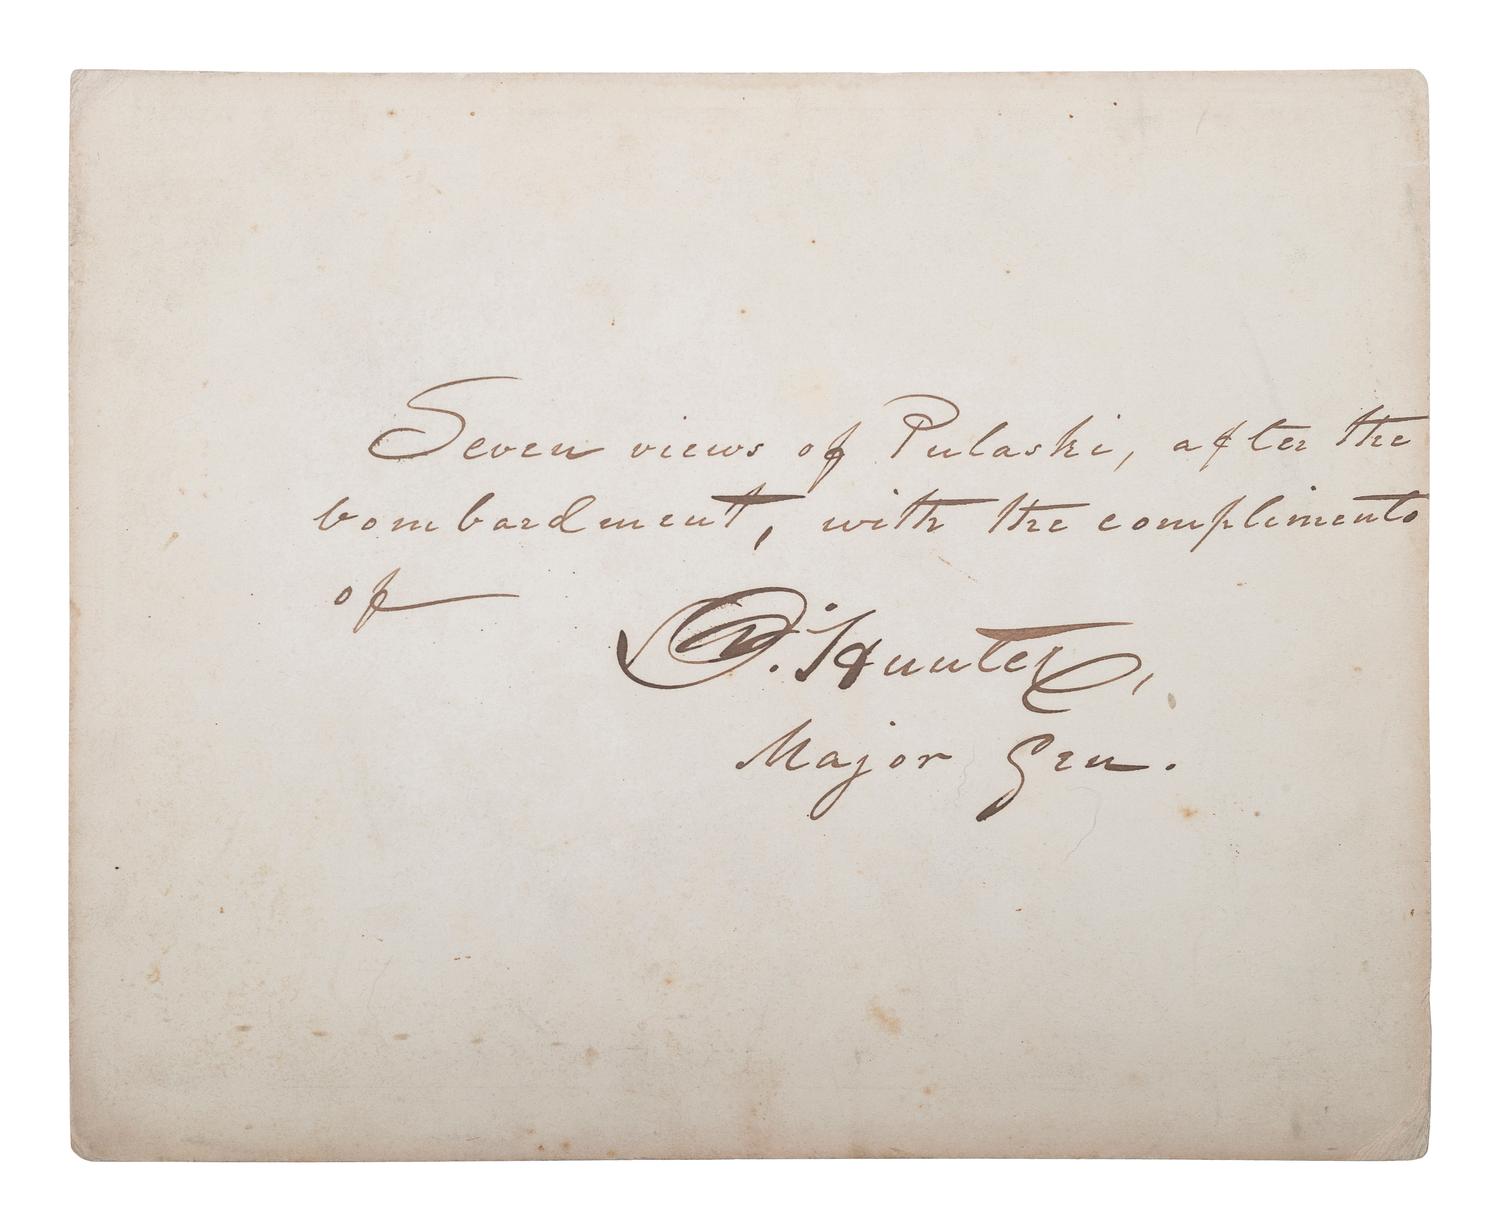 Seven views of Pulaski, after the
bombardment, with the compliments
of
D. Hunter,
Major Gen.